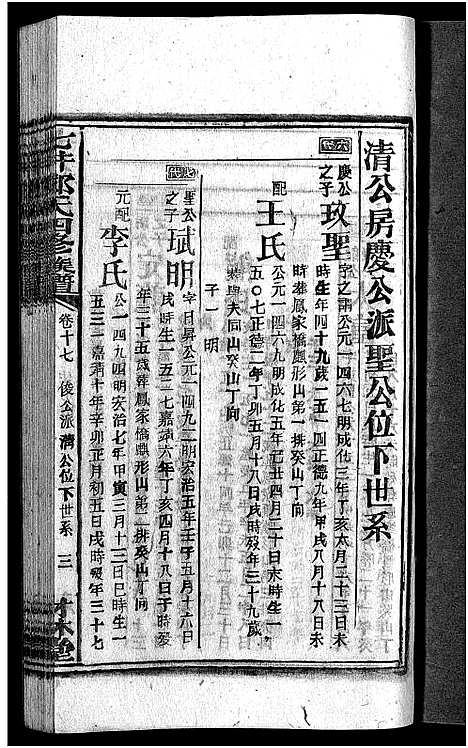 清公房慶公派聖公位下世系
慶公
之子
玖聖
字之謂公元一四六七明成化三年丁亥六月二十三日未
時生年四十九歲一五一四正德九年甲戌八月十八日未
時葬鳳家橋顱形山第一排癸山丁向
配
王氏
公元一四六九明成化五年己丑四月二十日未時生一
五〇七正德二年丁卯五月十八日戌時歿年三十九歲
大同山癸山丁向
子一 明
聖公
之子
珷明
字日昇公元一四九二明弘治五年壬子五月十九日
戌時生一五二七嘉靖六年丁亥四月十八日子時歿
年三十五歲葬鳳家橋顱形山第二排癸山丁向
元配
李氏
公一四九四明宏治七年甲寅三月十三日巳時生一
五三一嘉靖十年辛卯正月初五日戌時歿年三十七
氏四修族譜
卷十七
俊公派清公位下世系
三